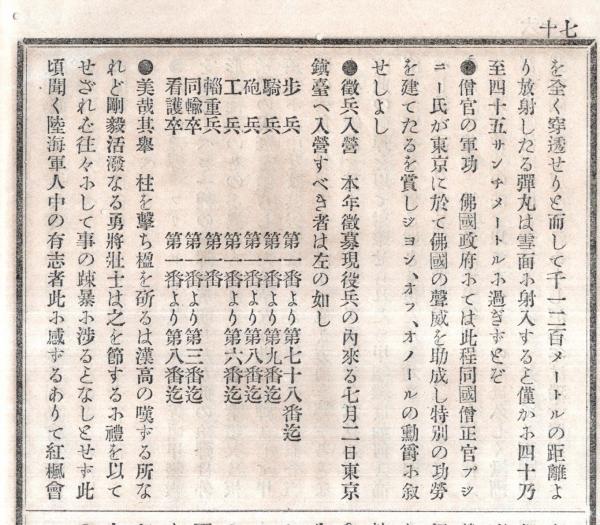 七十
を全く穿透せりと而して千一二百メートルの距離よ
り放射したる彈丸は雪面ㇹ射入すると僅かㇹ四十乃
至四十五サンチメートルㇹ過ぎずとぞ
●僧官の軍功 佛國政府ㇹては此程同國僧正官プジ
ニー氏が東京に於て佛國の聲威を助成し特別の功勞
を建てたるを賞しジヨン、オフ、オノールの勳爵ㇹ敘
せしよし
●徵兵入營 本年徵募現役兵の內來る七月二日東京
鎭臺へ入營すべき者は左の如し
步兵 第一番より第七十八番迄
騎兵 第一番より第九番迄
砲兵 第一番より第八番迄
工兵 第一番より第六番迄
輜重兵 第一番
同輸卒 第一番より第三番迄
看護卒 第一番より第八番迄
●美哉其擧 柱を擊ち楹を斫るは漢高の嘆ずる所な
れど剛毅活潑なる勇將壯士は之を節するㇹ禮を以て
せざれを往々ㇹして事の疎暴ㇹ涉るとなしとせず此
頃聞く陸海軍人中の有志者此ㇹ感ずるありて紅楓會